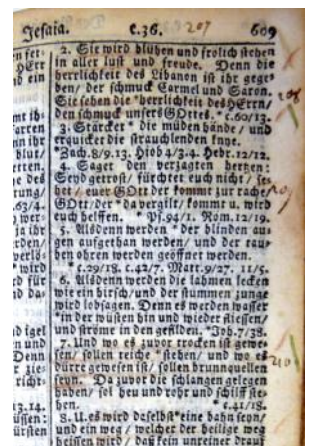 Jesaia. C. 36. 207 609
2. Sie wird blühen und frolich stehen
in aller lust und freude. Denn die
herrlichkeit des Libanon ist ihr gege-
ben/ der schmuck Carmel und Saron.
Sie sehen die *herrlichkeit des HErrn/
den schmuck unsers GOttes. *c.60/13.
3. Stärcket * die müden hände / und
erquicket die strauchlenden knye.
*Zach.8/9.13. Hiob 4/3.4. Hebr.12/12.
4. Saget den verzagten hertzen:
Seyd getrost/ fürchtet euch nicht/ Se-
het/ euer GOtt der kommt zur rache/
GOtt/der *da vergilt/ kommt u. wird
euch helffen. * Ps.94/1. Rom.12/19.
5. Alsdenn werden * der blinden au-
gen aufgethan werden/ und der tau-
ben ohren werden geöffnet werden.
* c.29/18. c.42/7. Matt.9/27. 11/5.
6. Alsdenn werden die lahmen lecken
wie ein hirsch/und der stummen zunge
wird lobsagen. Denn es werden wasser
*in der wüsten hin und wieder fliessen/
und ströme in den gefilden. *Joh.7/38.
7. Und wo es zuvor trocken ist gewe-
sen/ sollen teiche *stehen/ und wo es
dürre gewesen ist/ sollen brunnquellen
seyn. Da zuvor die schlangen gelegen
haben/ sol heu und rohr und schilff ste-
hen. * c.41/18.
8. U. es wird daselbst *eine bahn seyn/
und ein weg / welcher der heilige weg
heissen wird/ daß kein unreiner drauf